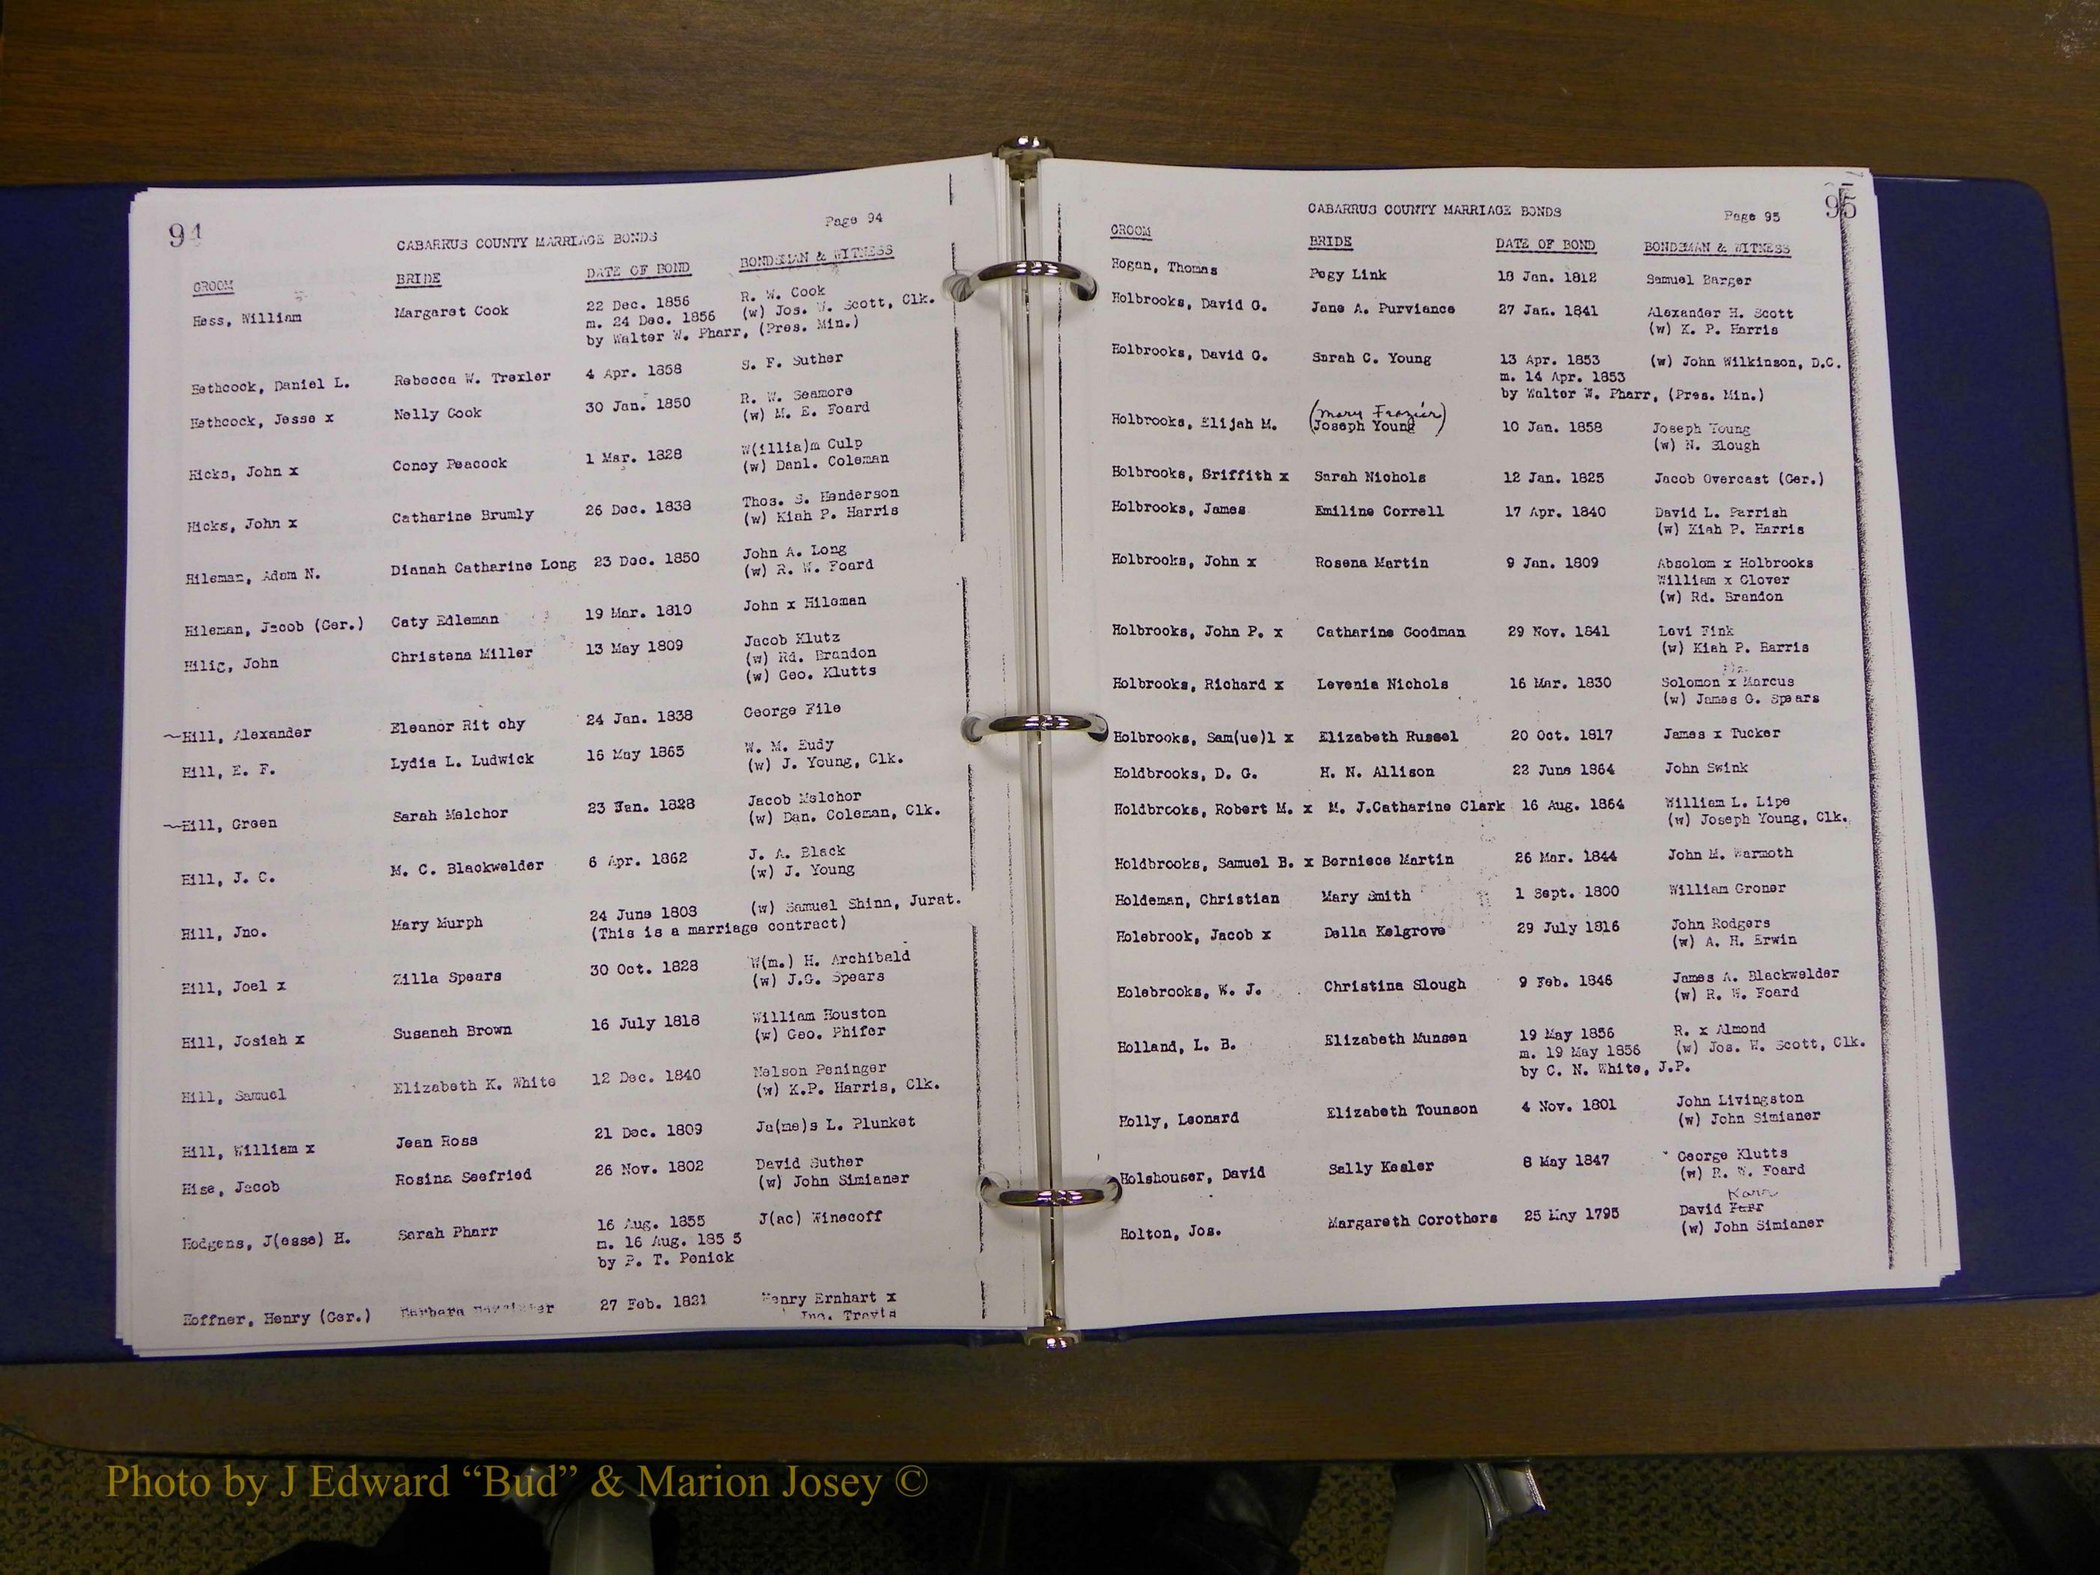 94
Page 94
CABARRUS COUNTY MARRIAGE BONDS
GROOM BRIDE DATE OF BOND BONDSMAN & WITNESS
Hess, William Margaret Cook 22 Dec. 1856 R. W. Cook
m. 24 Dec. 1856 (w) Jos. W. Scott, Clk.
by Walter W. Pharr, (Pres. Min.)
Hethcock, Daniel L. Rebecca W. Trexler 4 Apr. 1858 S. F. Suther
Hethcock, Jesse x Nelly Cook 30 Jan. 1850 R. W. Seamore
(w) M. E. Foard
Hicks, John x Coney Peacock 1 Mar. 1828 W(illia)m Culp
(w) Danl. Coleman
Hicks, John x Catharine Brumly 26 Dec. 1838 Thos. S. Henderson
(w) Kiah P. Harris
Hileman, Adam N. Dianah Catharine Long 23 Dec. 1850 John A. Long
(w) R. W. Foard
Hileman, Jacob (Ger.) Caty Edleman 19 Mar. 1810 John x Hileman
Hilig, John Christena Miller 13 May 1809 Jacob Klutz
(w) Rd. Brandon
(w) Geo. Klutts
~Hill, Alexander Eleanor Rit chy 24 Jan. 1838 George File
Hill, E. F. Lydia L. Ludwick 16 May 1865 W. M. Eudy
(w) J. Young, Clk.
~Hill, Green Sarah Melchor 23 Jan. 1828 Jacob Melchor
(w) Dan. Coleman, Clk.
Hill, J. C. M. C. Blackwelder 6 Apr. 1862 J. A. Black
(w) J. Young
Hill, Jno. Mary Murph 24 June 1808 (w) Samuel Shinn, Jurat.
(This is a marriage contract)
Hill, Joel x Zilla Spears 30 Oct. 1828 W(m.) H. Archibald
(w) J.G. Spears
Hill, Josiah x Susanah Brown 16 July 1818 William Houston
(w) Geo. Phifer
Hill, Samuel Elizabeth K. White 12 Dec. 1840 Nelson Peninger
(w) K.P. Harris, Clk.
Hill, William x Jean Ross 21 Dec. 1809 Ja(me)s L. Plunket
Hise, Jacob Rosina Seefried 26 Nov. 1802 David Suther
(w) John Simianer
Hodgens, J(esse) H. Sarah Pharr 16 Aug. 1855 J(ac) Winecoff
m. 16 Aug. 185 5
by P. T. Penick
Hoffner, Henry (Ger.) Barbara 27 Feb. 1821 Henry Ernhart x
Jno. Travis
95
Page 95
CABARRUS COUNTY MARRIAGE BONDS
GROOM BRIDE DATE OF BOND BONDSMAN & WITNESS
Hogan, Thomas Pegy Link 18 Jan. 1812 Samuel Barger
Holbrooks, David G. Jane A. Purviance 27 Jan. 1841 Alexander H. Scott
(w) K. P. Harris
Holbrooks, David G. Sarah C. Young 13 Apr. 1853 (w) John Wilkinson, D.C.
m. 14 Apr. 1853
by Walter W. Pharr, (Pres. Min.)
(Mary Frazier)
Holbrooks, Elijah M. (Joseph Young) 10 Jan. 1858 Joseph Young
(w) N. Slough
Holbrooks, Griffith x Sarah Nichols 12 Jan. 1825 Jacob Overcast (Ger.)
Holbrooks, James Emiline Correll 17 Apr. 1840 David L. Parrish
(w) Kiah P. Harris
Holbrooks, John x Rosena Martin 9 Jan. 1809 Absolom x Holbrooks
William x Clover
(w) Rd. Brandon
Holbrooks, John P. x Catharine Goodman 29 Nov. 1841 Levi Fink
(w) Kiah P. Harris
Holbrooks, Richard x Levenia Nichols 16 Mar. 1830 Solomon x Marcus
(w) James G. Spears
Holbrooks, Sam(ue)l x Elizabeth Russel 20 Oct. 1817 James x Tucker
Holdbrooks, D. G. H. N. Allison 22 June 1864 John Swink
Holdbrooks, Robert M. x M. J.Catharine Clark 16 Aug. 1864 William L. Lipe
(w) Joseph Young, Clk.
Holdbrooks, Samuel B. x Berniece Martin 26 Mar. 1844 John M. Warmoth
Holdeman, Christian Mary Smith 1 Sept. 1800 William Groner
Holebrook, Jacob x Della Kelgrove 29 July 1816 John Rodgers
(w) A. H. Erwin
Holebrooks, W. J. Christina Slough 9 Feb. 1846 James A. Blackwelder
(w) R. W. Foard
Holland, L. B. Elizabeth Munsen 19 May 1856 R. x Almond
m. 19 May 1856 (w) Jos. W. Scott, Clk.
by C. N. White, J.P.
Holly, Leonard Elizabeth Tounson 4 Nov. 1801 John Livingston
(w) John Simianer
Holshouser, David Sally Kesler 8 May 1847 George Klutts
(w) R. W. Foard
Karr
Holton, Jos. Margareth Corothers 25 May 1795 David Farr
(w) John Simianer
Photo by J Edward “Bud” & Marion Josey ©